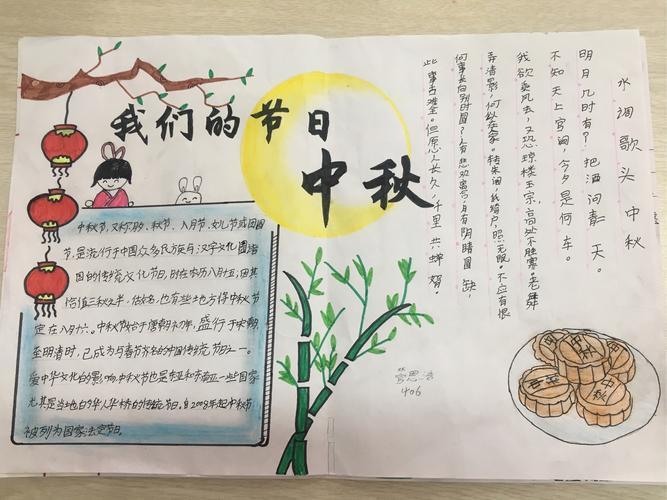 我们的节日
中秋
中秋节,又称月夕、秋节、八月节、女儿节或团圆
节,是流行于中国众多民族与汉字文化圈诸
国的传统文化节日,时在农历八月十五,因其
恰值三秋之半,故名,也有些地方将中秋节
定在八月十六。中秋节始于唐朝初年,盛行于宋朝,
至明清时,已成为与春节齐名的中国传统节日之一。
受中华文化的影响,中秋节也是东亚和东南亚一些国家
尤其是当地的华人华侨的传统节日。自2008年起中秋节
被列为国家法定节日。
水调歌头 中秋
明月几时有?把酒问青天。
不知天上宫阙,今夕是何年。
我欲乘风去,又恐琼楼玉宇,高处不胜寒。起舞
弄清影,何似在人家。转朱阁,低绮户,照无眠。不应有恨
何事长向别时圆?人有悲欢离合,月有阴晴圆缺,
此事古难全。但愿人长久,千里共婵娟。
思洁
406
中秋
中秋
中秋